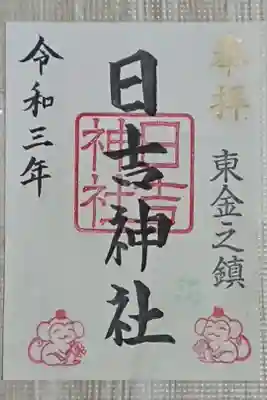 奉拝
東金之鎮
日吉神社
日吉
神社
令和三年